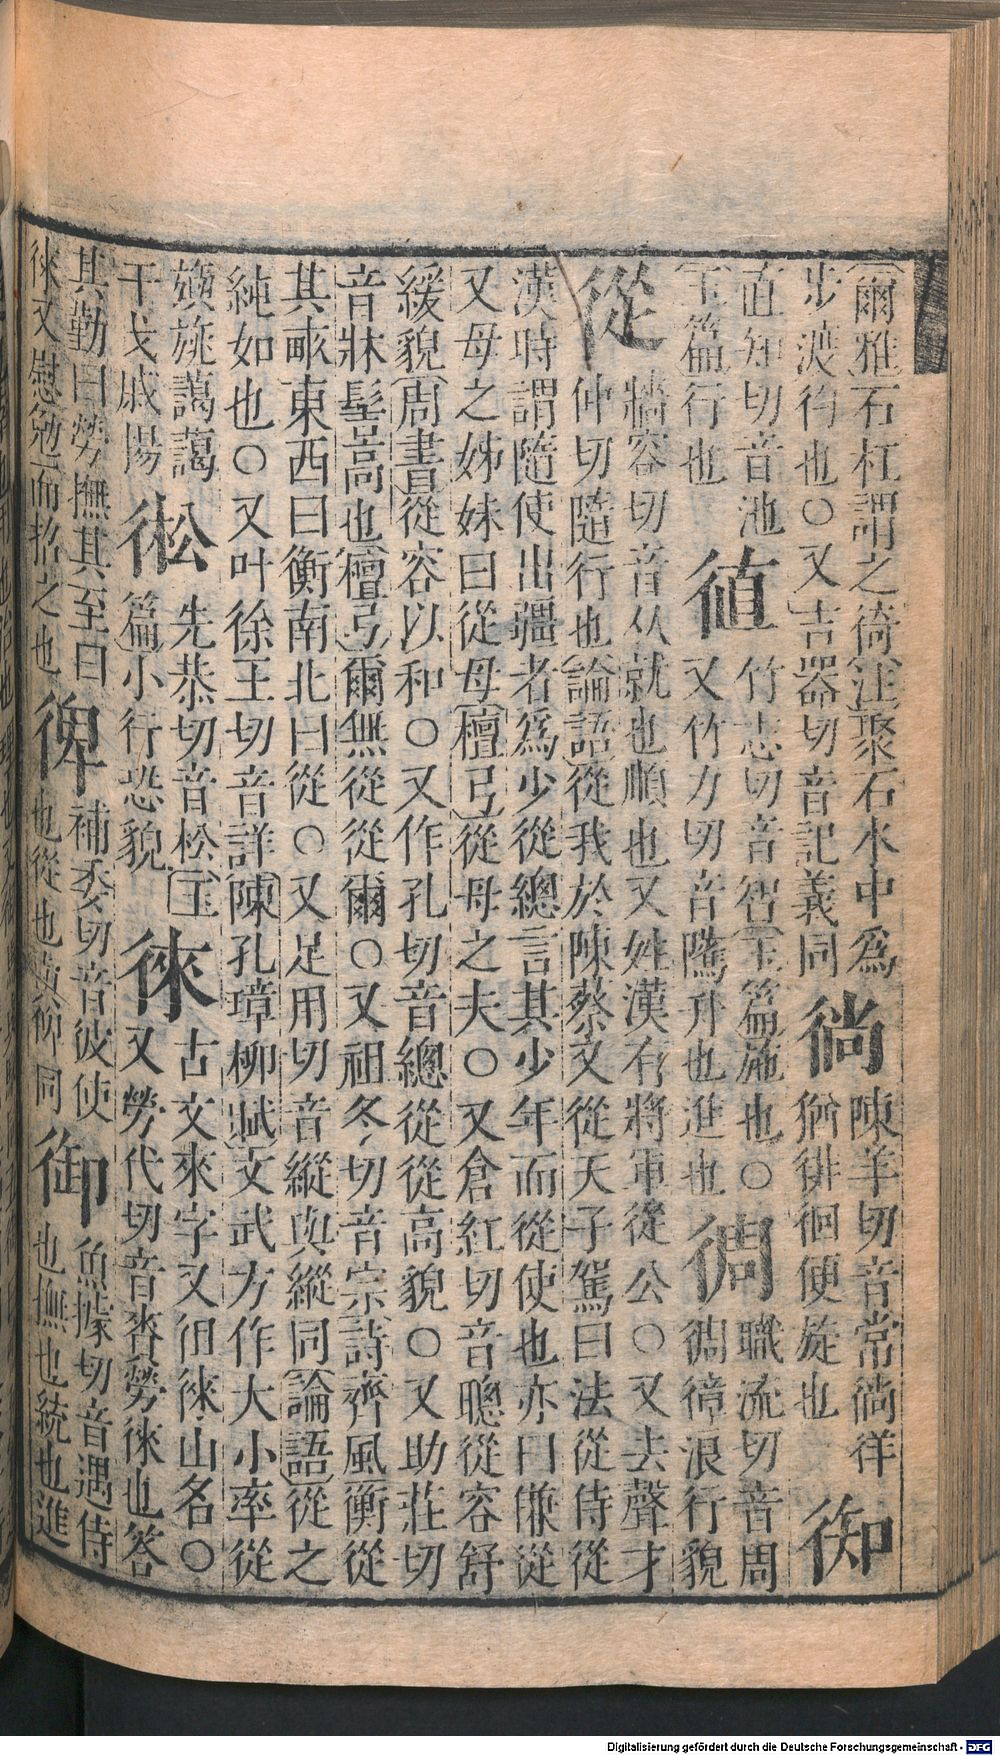 爾雅石杠謂之徛注聚石水中爲
步渡彴也○又吉器切音記義同
徜
陳羊切音常徜徉
猶徘徊便旋也
直知切音池
玉篇行也
徝
竹志切音智玉篇施也○
又竹力切音隲升也進也
徟
職流切音周
徟浪行貌
從
牆容切音从就也順也又姓漢有將軍從公○又去聲才
仲切隨行也論語從我於陳蔡又從天子駕曰法從侍從
漢時謂隨使出疆者爲少從總言其少年而從使也亦曰傔從
又母之姊妹曰從母檀弓從母之夫○又倉紅切音聰從容舒
緩貌周書從容以和○又作孔切音總從從高貌○又助莊切
音牀髻高也檀弓爾無從從爾○又祖冬切音宗詩齊風衡從
其畝東西曰衡南北曰從○又足用切音縱與縱同論語從之
純如也○又叶徐王切音詳陳孔璋柳賦文武方作大小率從
旟旐藹藹
干戈戚揚
先恭切音松玉
篇小行恐貌
徠
古文來字又徂徠山名○
又勞代切音賚勞徠也答
其勤曰勞撫其至曰
徠又慰勉而招之也
補委切音彼使
也從也與俾同
御
魚據切音遇侍
也撫也統也進
Digitalisierung gefördert durch die Deutsche Forschungsgemeinschaft - DFG